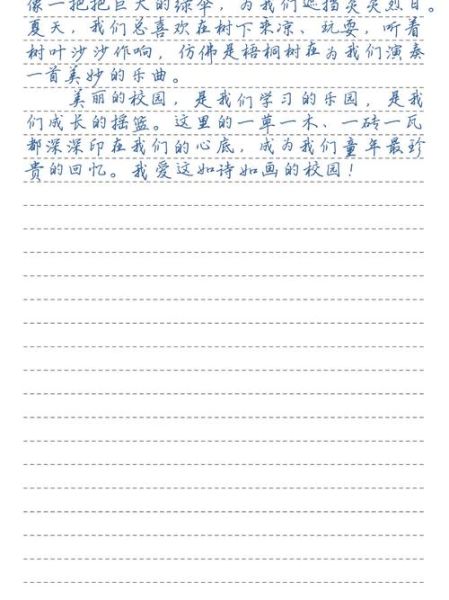 像一把把巨大的绿伞，为我们遮挡炎炎烈日。
夏天，我们总喜欢在树下来凉、玩耍，听着
树叶沙沙作响，仿佛是梧桐树在为我们演奏
一首美妙的乐曲。
美丽的校园，是我们学习的乐园，是我
们成长的摇篮。这里的一草一木、一砖一瓦
都深深印在我们的心底，成为我们童年最珍
贵的回忆。我爱这如诗如画的校园！